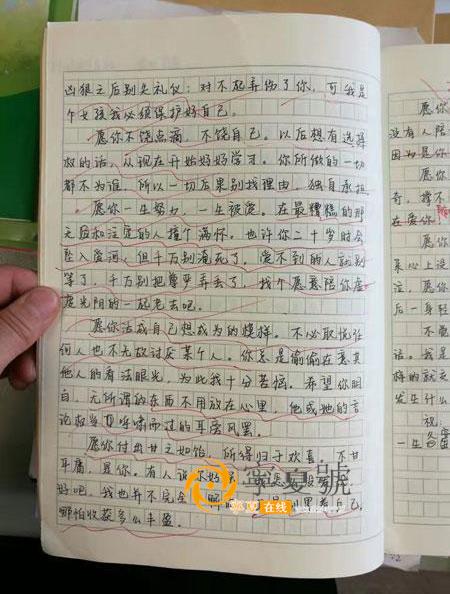 凶狠之后别失礼仪：对不起弄伤了你，可我是
个女孩我必须保护好自己。
愿你不饶点滴，不饶自己。以后想有选择
权的话，从现在开始好好学习。你所做的一切
都不为谁，所以一切后果别找理由，独自承担
愿你一生努力，一生被爱。在最糟糕的那
天后和注定的人撞个满怀。也许你二十岁时会
坠入爱河，但千万别淹死了，爱不到的人就别
等了，千万别把尊严弄丢了，找个愿意陪你虚
度光阴的一起老去吧。
愿你活成自己想成为的模样。不必取悦任
何人也不无故讨厌某个人。你总是偷偷在意其
他人的看法眼光，为此我十分苦恼。希望你明
白，无所谓的东西不用放在心里，他或她的言
论权当耳旁风罢。
愿你付出甘之如饴，所得归于欢喜。不甘
平庸，是你。有人说你好
好吧，我也并不完全 别累着自己，
哪怕收获多么丰盈。
寧夏號
在线
愿你
没有人陪
因为是你
愿你
奇，撑不
在爱你
愿你
后一身轻
不要
话。我是
发生什么
一生